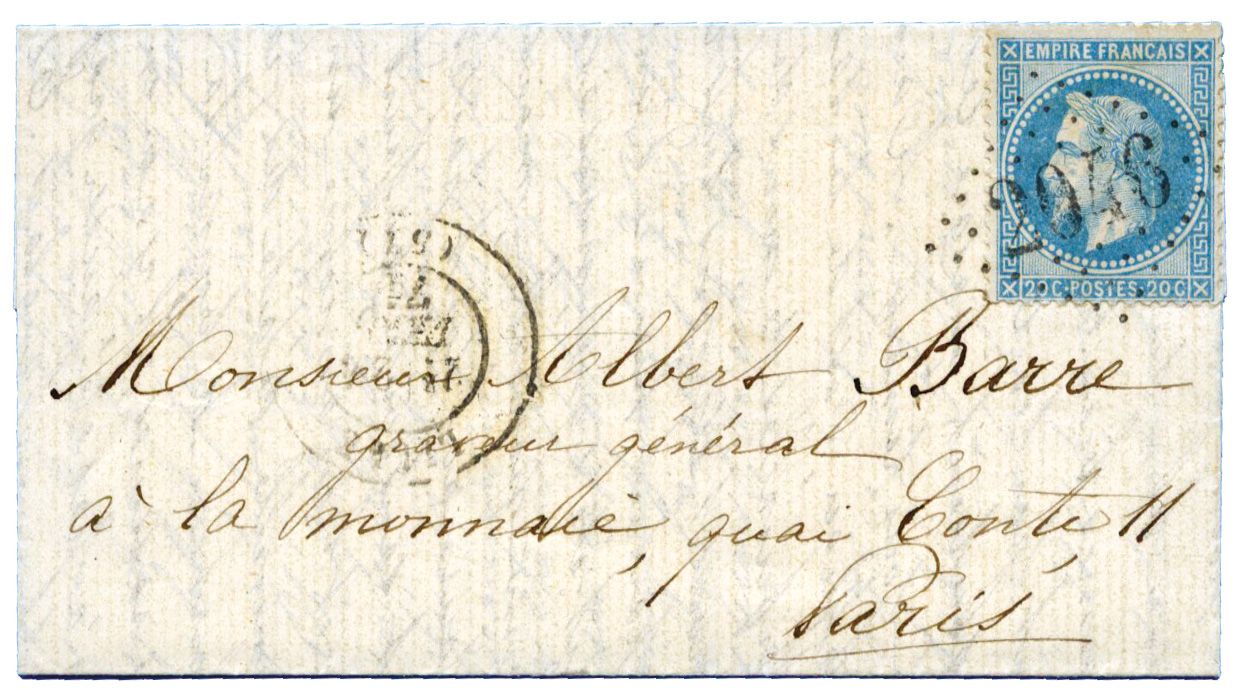 EMPIRE FRANÇAIS
2046
20 C · POSTES · 20 C
(51)
71
Monsieur Albert Barre
graveur général
à la monnaie, quai Conti, 11
Paris